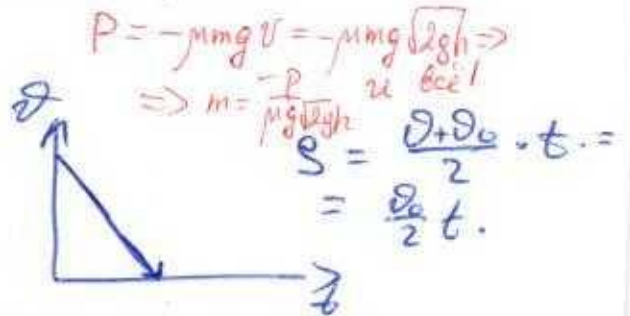 P = -μmg v = -μmg √2gh =>
=> m = -P / μg√2gh и всё!
S = (v + v₀) / 2 · t. =
= v₀ / 2 t.
v
t